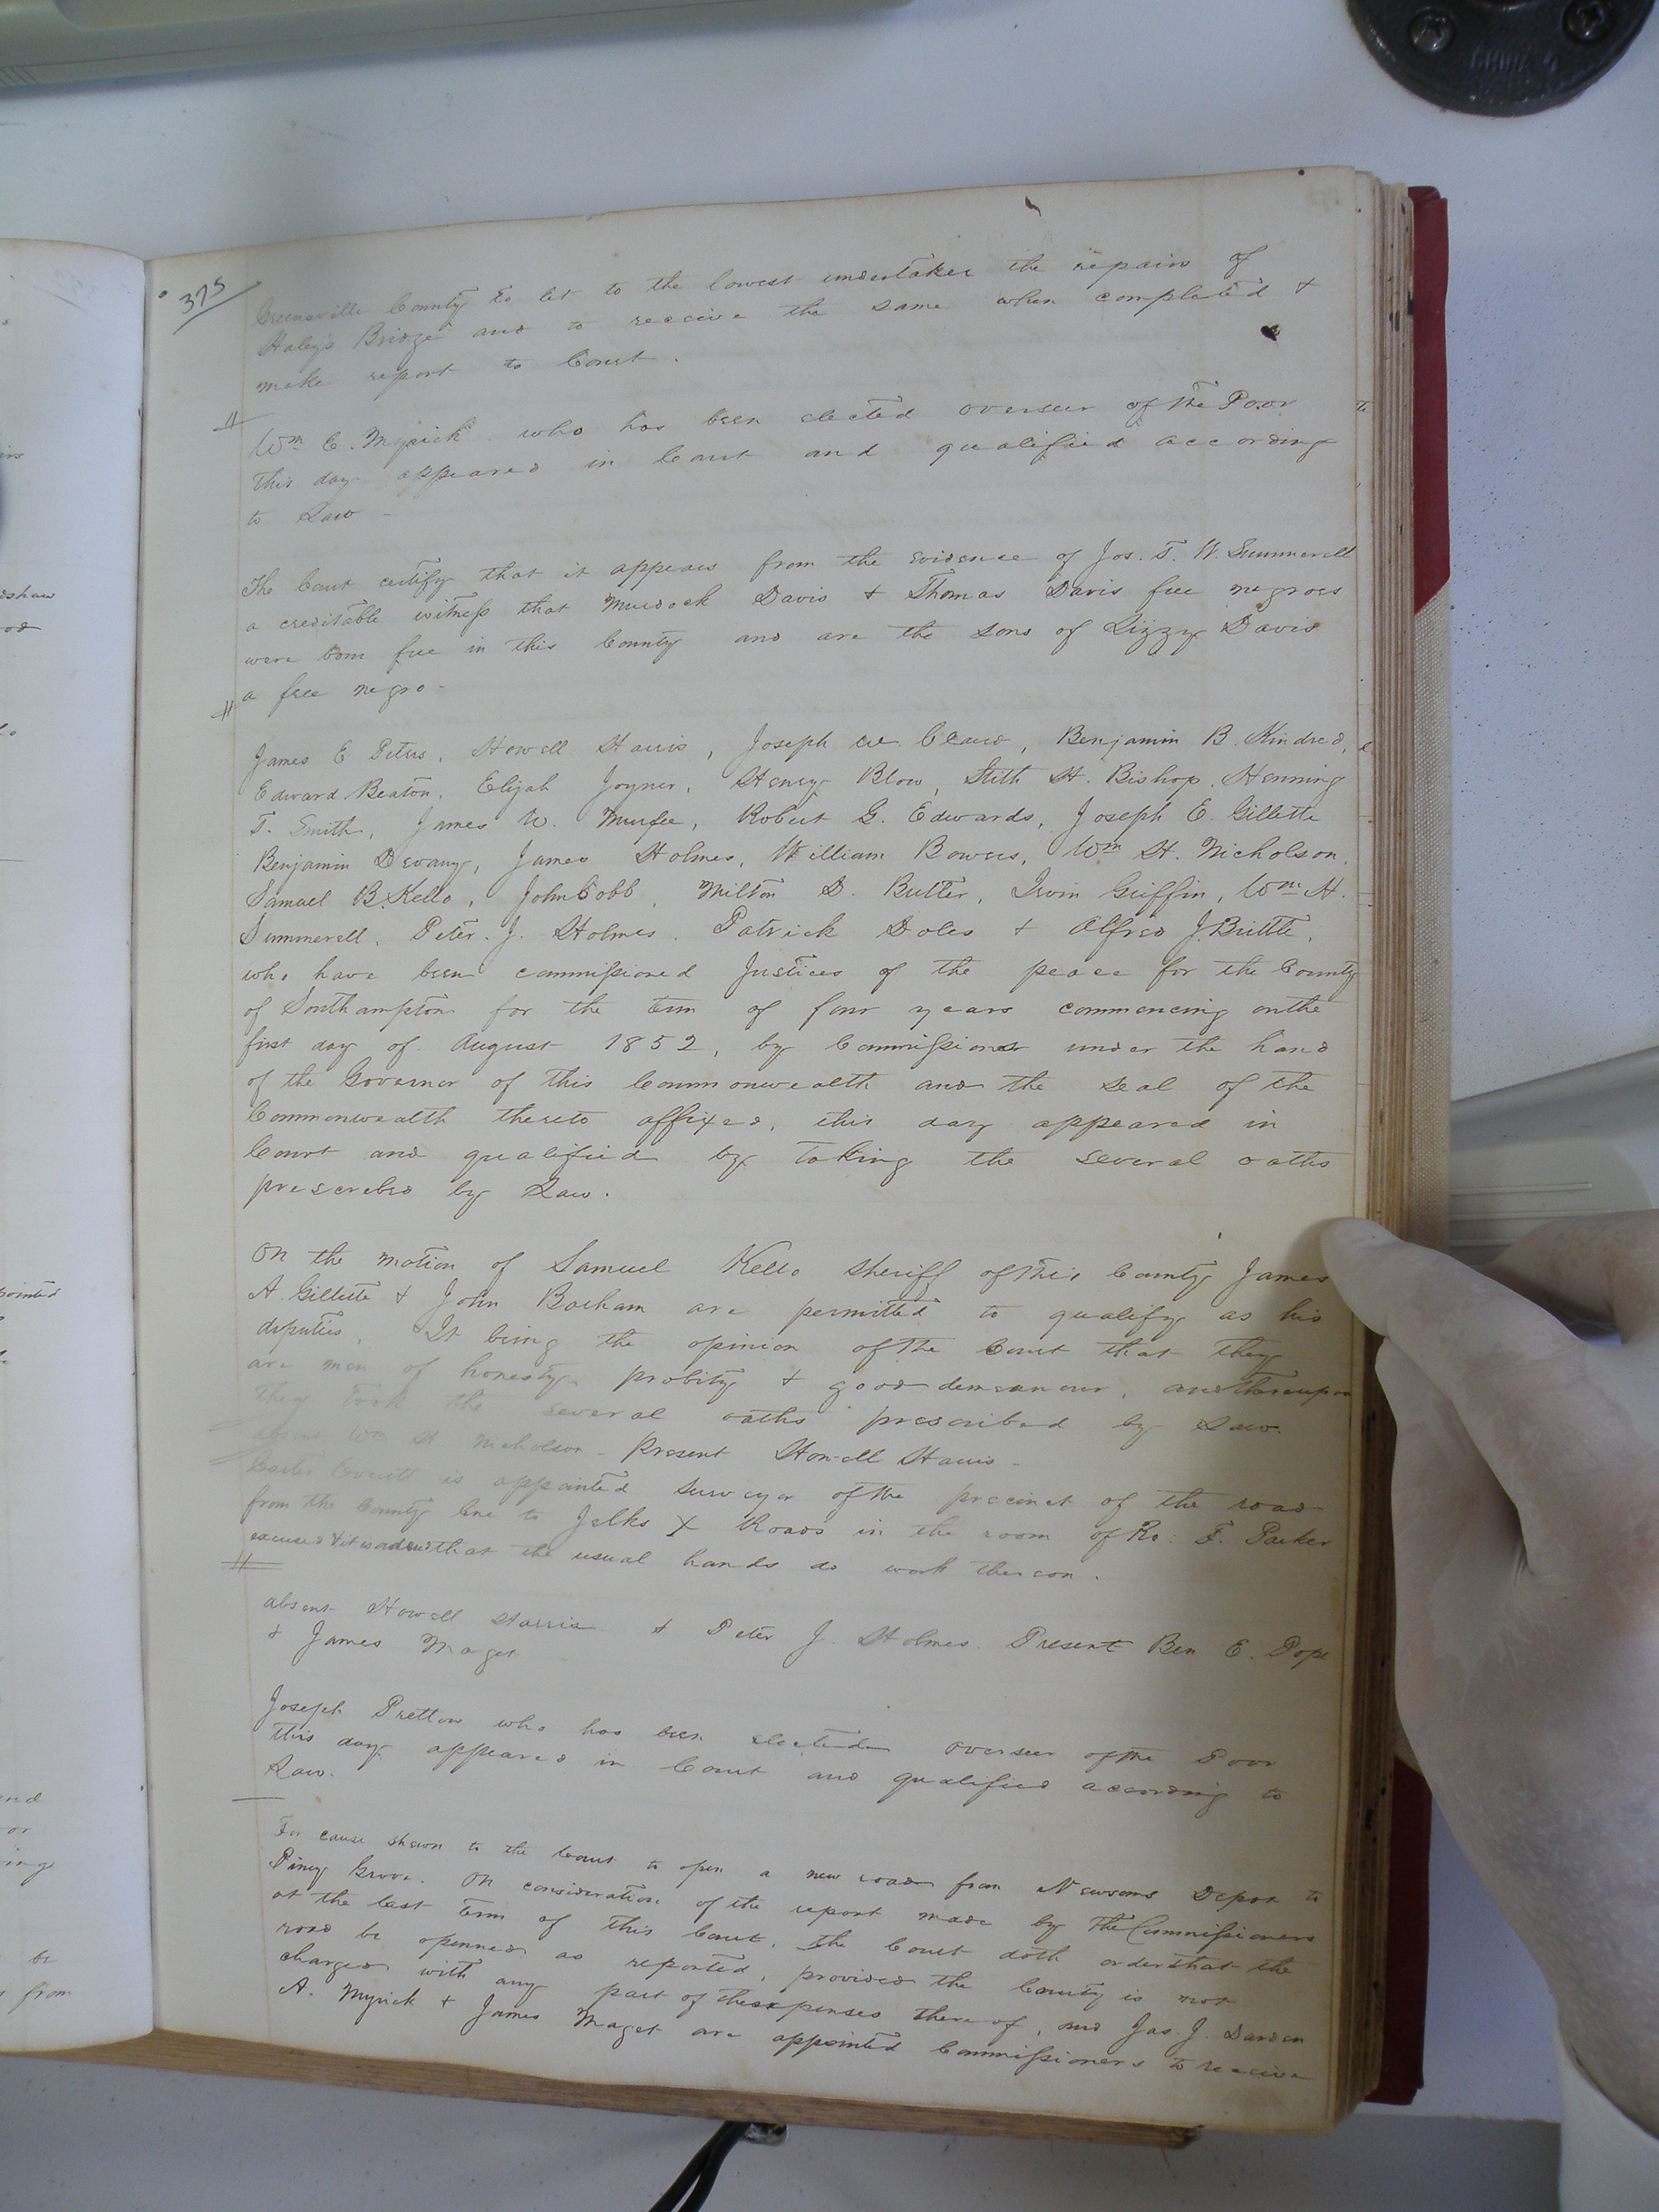 375
Greensville County to let to the lowest undertaker the repairs of
Haley's Bridge and to receive the same when completed &
make report to Court.
Wm E. Myrick who has been elected overseer of the Poor
this day appeared in Court and qualified according
to Law -
The Court certify that it appears from the evidence of Jos. T. W. Summerell
a creditable witness that Murdock Davis & Thomas Davis free negroes
were born free in this County and are the sons of Lizzy Davis
a free negro -
James E Peters, Howell Harris, Joseph W. Claud, Benjamin B. Kindred,
Edward Beaton, Elijah Joyner, Henry Blow, Stith H. Bishop, Henning
T. Smith, James W. Murfee, Robert G. Edwards, Joseph E. Gillette
Benjamin Devany, James Holmes, William Bowers, Wm H. Nicholson,
Samuel B. Kello, John Cobb, Milton D. Butler, Irvin Griffin, Wm H.
Summerell, Peter J. Holmes, Patrick Doles & Alfred J. Brittle,
who have been commissioned Justices of the peace for the County
of Southampton for the term of four years commencing on the
first day of August 1852, by Commissions under the hand
of the Governor of this Commonwealth and the seal of the
Commonwealth thereto affixed, this day appeared in
Court and qualified by taking the several oaths
prescrebed by Law.
On the motion of Samuel Kello Sheriff of this County James
A. Gillette & John Barham are permitted to qualify as his
deputies. It being the opinion of the Court that they
are men of honesty probity & good demeanour, and thereupon
they took the several oaths prescribed by Law.
absent Wm H Nicholson - Present Howell Harris -
Everitt is appointed Surveyor of the precinct of the road
from the County line to Jelks X Roads in the room of Ro: F. Parker
excused & it is ordered that the usual hands do work thereon.
absent Howell Harris & Peter J. Holmes. Present Ben E. Pope
& James Maget
Joseph Pretlow who has been elected overseer of the Poor
this day appeared in Court and qualified according to
Law.
For cause shown to the Court to open a new road from Newsoms Depot to
Piney Grove. On consideration of the report made by the Commissioners
at the last term of this Court, the Court doth order that the
road be openned as reported, provided the County is not
charged with any part of the expenses thereof, and Jas. J. Darden
A. Myrick & James Maget are appointed Commissioners to receive